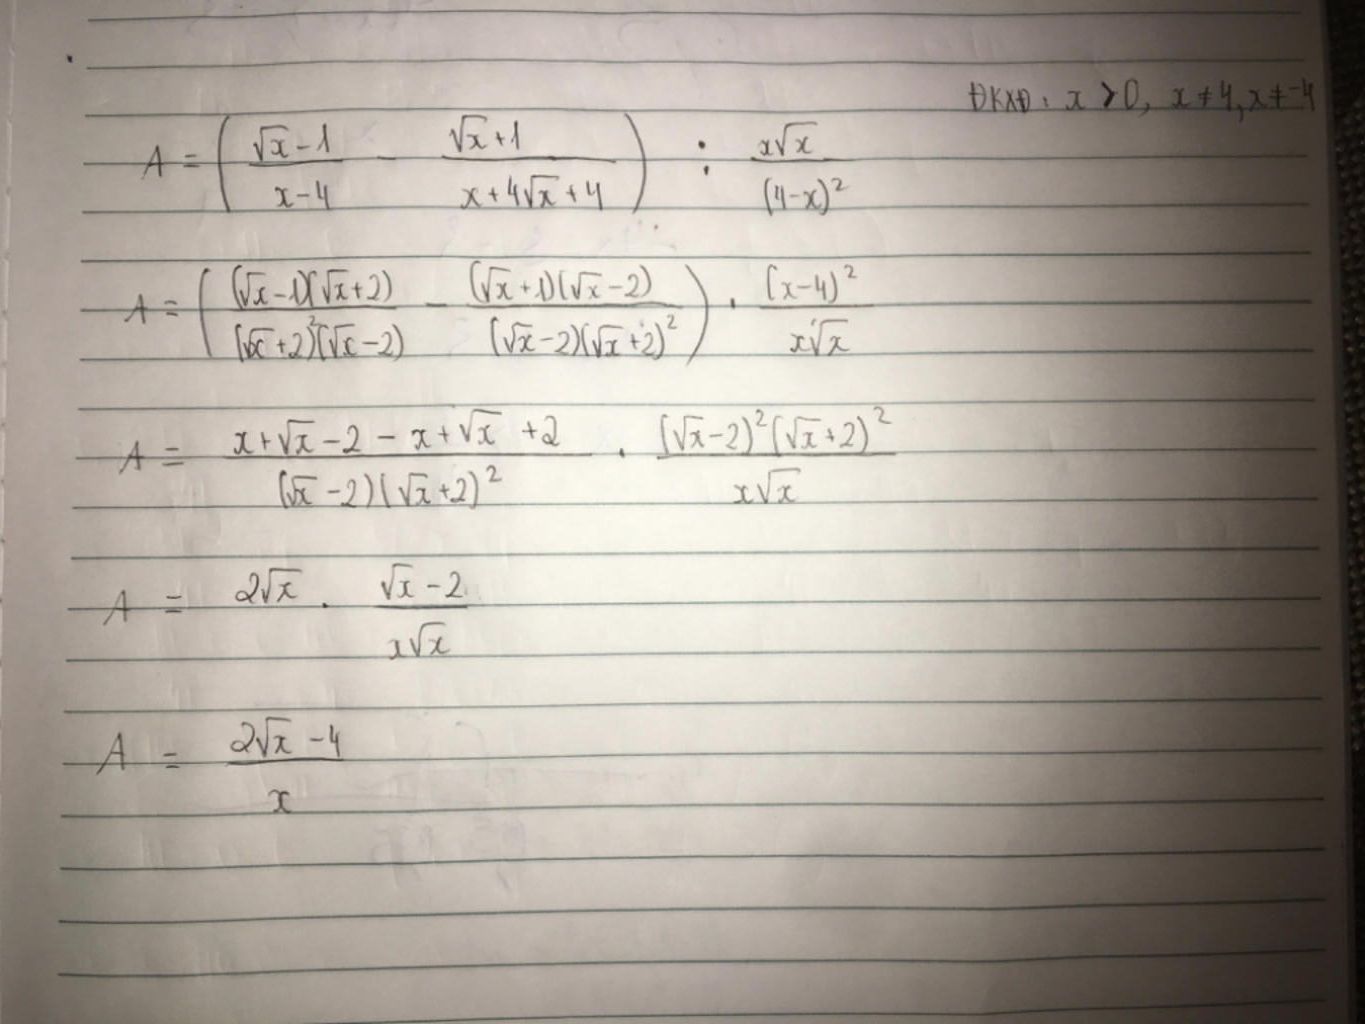 ĐKXĐ: x > 0, x ≠ 4, x ≠ -4
A = ( (√x - 1)/(x - 4) - (√x + 1)/(x + 4√x + 4) ) : x√x/(4-x)²
A = ( (√x - 1)(√x + 2)/((√x + 2)²(√x - 2)) - (√x + 1)(√x - 2)/((√x - 2)(√x + 2)²) ) . (x-4)²/(x√x)
A = (x + √x - 2 - x + √x + 2)/((√x - 2)(√x + 2)²) . (√x - 2)²(√x + 2)²/(x√x)
A = 2√x . (√x - 2)/(x√x)
A = (2√x - 4)/x